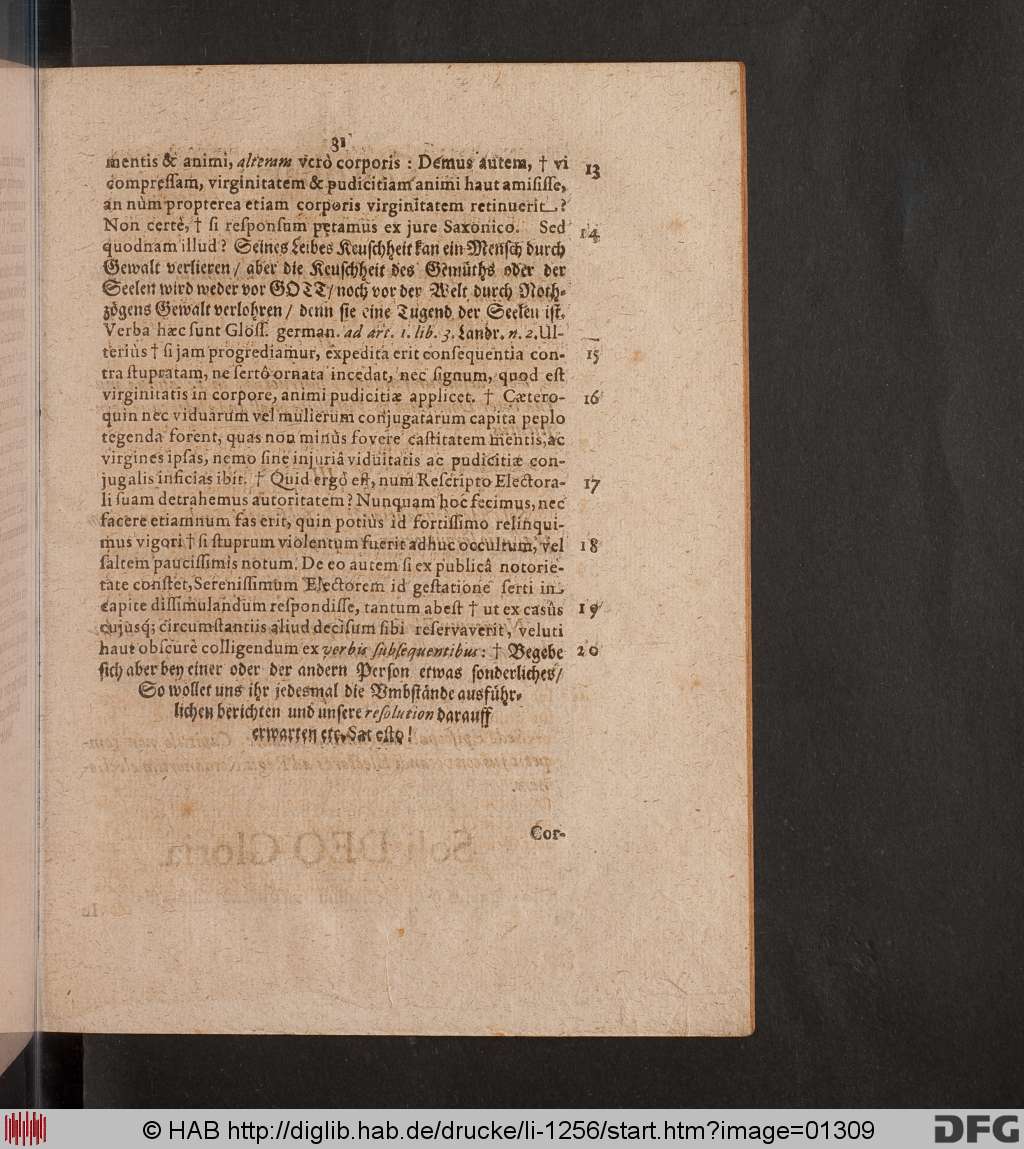 31
mentis & animi, alteram verò corporis : Demus autem, † vi 13
compressam, virginitatem & pudicitiam animi haut amisisse,
an nùm propterea etiam corporis virginitatem retinuerit ?
Non certè, † si responsum petamus ex jure Saxonico. Sed 14
quodnam illud ? Seines Leibes Keuschheit kan ein Mensch durch
Gewalt verlieren / aber die Keuschheit des Gemüths oder der
Seelen wird weder vor GOTT / noch vor der Welt durch Noth-
zögens Gewalt verlohren / denn sie eine Tugend der Seelen ist.
Verba hæc sunt Glöss. german. ad art. 1. lib. 3. Landr. n. 2. Ul-
teriùs † si jam progrediamur, expedita erit consequentia con- 15
tra stupratam, ne sertô ornata incedat, nec signum, quod est
virginitatis in corpore, animi pudicitiæ applicet. † Cætero- 16
quin nec viduarum vel mulierum conjugatarum capita peplo
tegenda forent, quas non minùs fovere castitatem mentis, ac
virgines ipsas, nemo sine injuriâ viduitatis ac pudicitiæ con-
jugalis inficias ibit. † Quid ergò est, num Rescripto Electora- 17
li suam detrahemus autoritatem ? Nunquam hoc fecimus, nec
facere etiamnum fas erit, quin potiùs id fortissimo relinqui-
mus vigori † si stuprum violentum fuerit adhuc occultum, vel 18
saltem paucissimis notum. De eo autem si ex publicâ notorie-
tate constet, Serenissimum Electorem id gestatione serti in
capite dissimulandum respondisse, tantum abest † ut ex casûs 19
cujusq; circumstantiis aliud decisum sibi reservaverit, veluti
haut obscurè colligendum ex verbis subsequentibus : † Begebe 20
sich aber bey einer oder der andern Person etwas sonderliches /
So wollet uns ihr jedesmal die Umbstände ausführ-
lichen berichten und unsere resolution darauff
erwarten etc. Sat esto !
Cor-
© HAB http://diglib.hab.de/drucke/li-1256/start.htm?image=01309
DFG